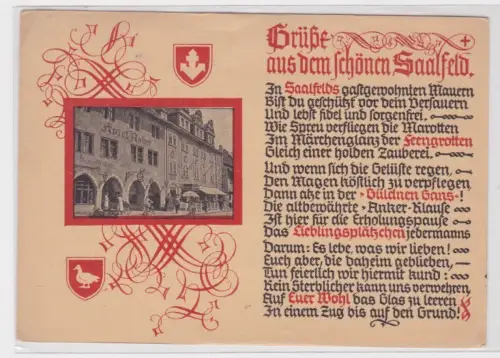 Grüße
aus dem schönen Saalfeld.
In Saalfelds gastgewohnten Mauern
Bist du geschützt vor dem Versauern
Und lebst fidel und sorgenfrei.
Wie Spreu verfliegen die Marotten
Im Märchenglanz der Feengrotten
Gleich einer holden Zauberei.
Und wenn sich die Gelüste regen,
Den Magen köstlich zu verpflegen,
Dann atze in der "Güldnen Gans"!
Die altbewährte Anker-Klause
Ist hier für die Erholungspause
Das Lieblingsplätzchen jedermanns
Darum: Es lebe, was wir lieben!
Euch aber, die daheim geblieben,
Tun feierlich wir hiermit kund:
Kein Sterblicher kann uns verwehren,
Auf Euer Wohl das Glas zu leeren
In einem Zug bis auf den Grund!
Hotel Anker